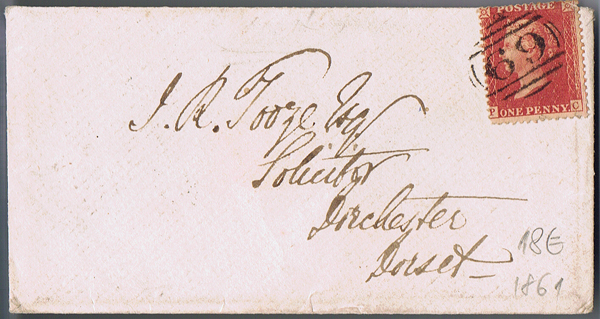 POSTAGE
69
P ONE PENNY. C
J. R. Tooze Esq.
Solicitor
Dorchester
Dorset
18E
1861